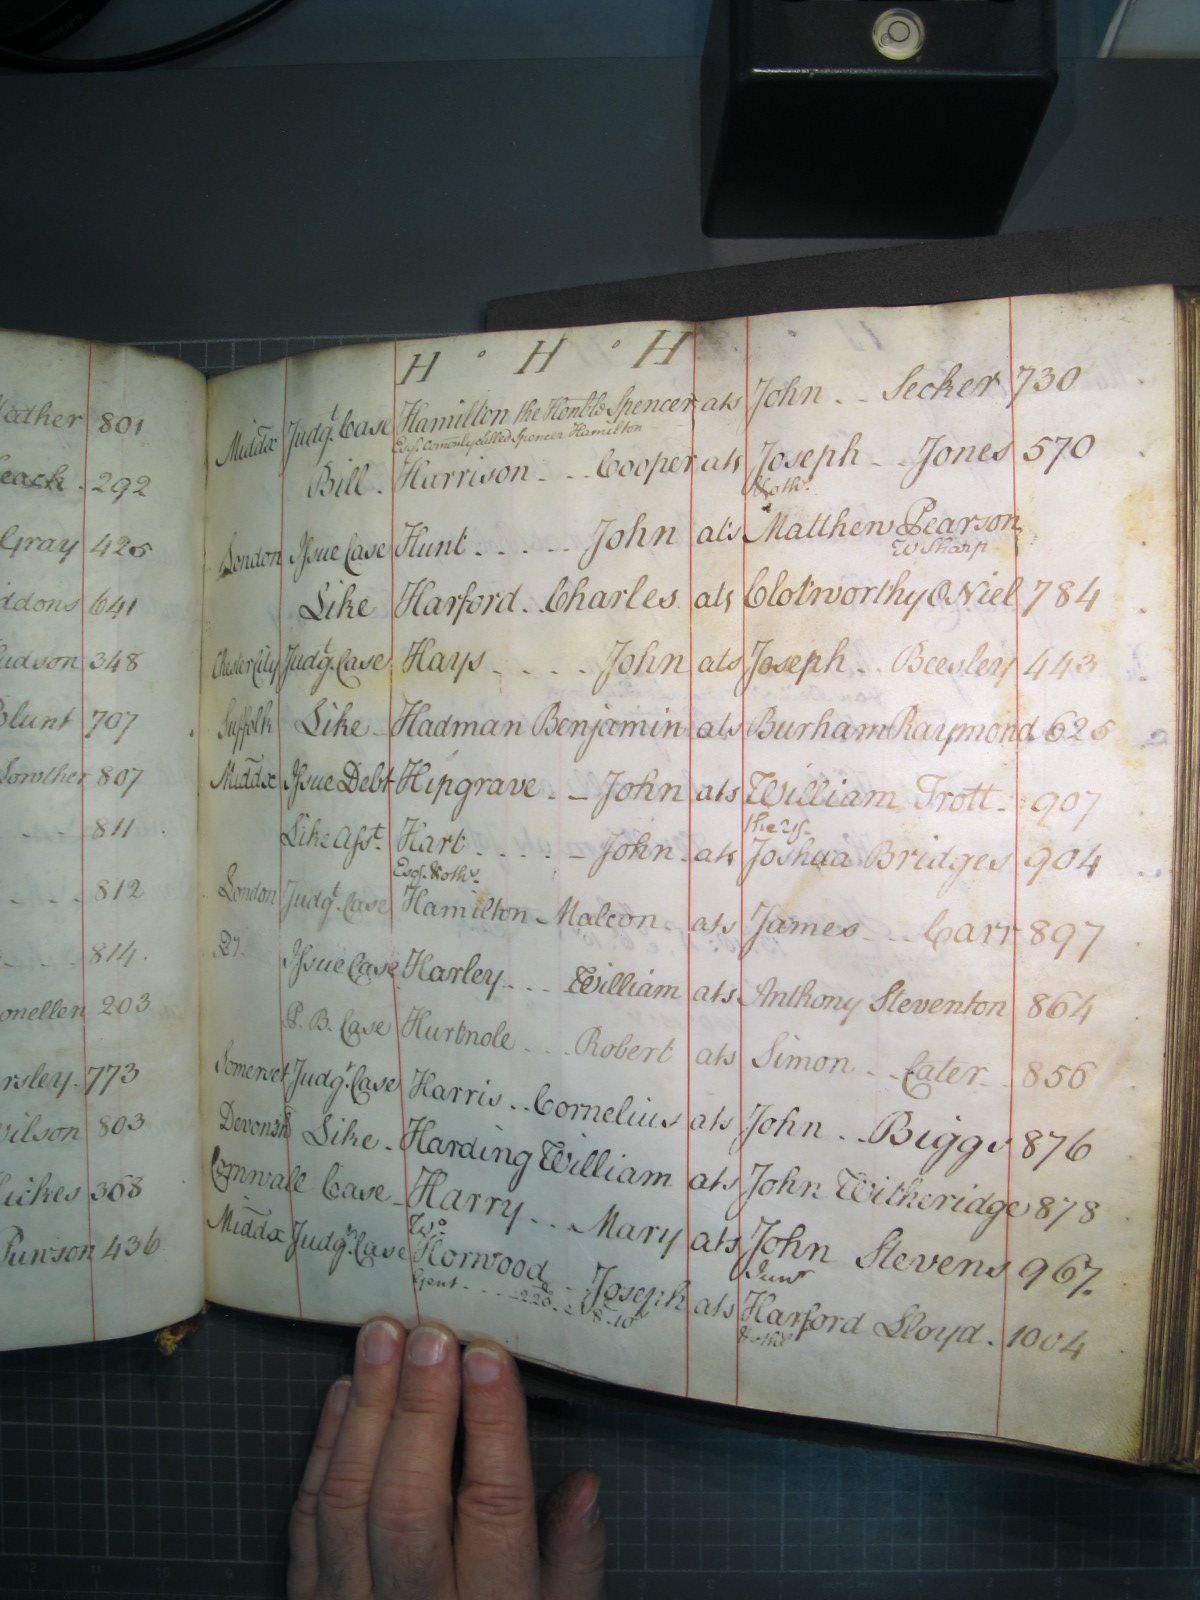 ather 801
each . 292
Gray 425
ddons 641
udson 348
Blunt 707
Lowther 807
811
812
814.
omellen 203
rsley . 773
Wilson 803
ickes 363
Punson 436
H ° H ° H
Middx Judgt. Case Hamilton the Honble Spencer ats John .. Secker 730
Esqr. Comonly called Spencer Hamilton
Bill . Harrison ... Cooper ats Joseph .. Jones 570
& othr.
London Issue Case Hunt ..... John ats Matthew Pearson
W Sharp
Like Harford . Charles ats Clotworthy O Niel 784
Chester City Judgt. Case Hays .... John ats Joseph .. Beesley 443
Suffolk Like Hadman Benjamin ats Burham Raymond 625
Middx Issue Debt Hipgrave .. John ats William Trott . 907
the 2d.
Like Asst. Hart ..... John ats Joshua Bridges 904
Esqr. & othr.
London Judgt. Case Hamilton Malcon . ats James ... Carr 897
Do. Issue Case Harley ... William ats Anthony Steventon 864
P. B. Case Hurtnole ... Robert ats Simon .. Cater .. 856
Somerset Judgt. Case Harris .. Cornelius ats John .. Biggs 876
Devonsh Like . Harding William ats John Witheridge 878
Cornwall Case Harry ... Mary ats John Stevens 967.
Wo. Junr
Middx Judgt. Case Horwood .. Joseph ats Harford Lloyd . 1004
Gent & othr